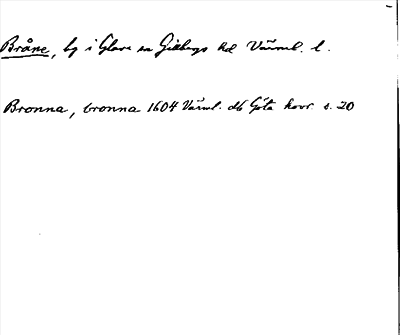 Bråne, by i Glava sn Gillbergs hd Värml. l.
Bronna, bronna 1604 Värml. db Göta hovr s. 20